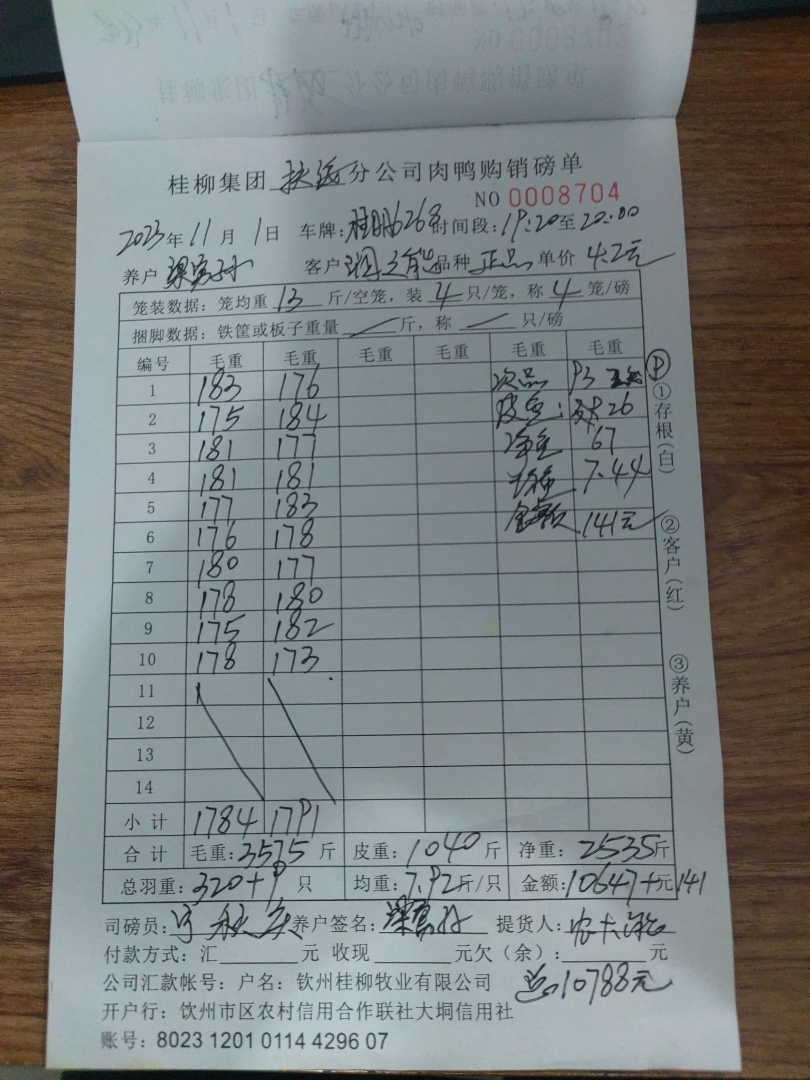 桂柳集团 扶绥 分公司肉鸭购销磅单
NO 0008704
2023年 11月 1日 车牌: 626 时间段: 19:20至20:00
养户 客户 品种 正品 单价 4.2元
笼装数据: 笼均重 13 斤/空笼, 装 4 只/笼, 称 4 笼/磅
捆脚数据: 铁筐或板子重量 斤, 称 只/磅
编号 毛重 毛重 毛重 毛重 毛重 毛重
1 183 176 次品
2 175 184 皮重: 26
3 181 177 净重 67
4 181 181 均重 7.44
5 177 183 金额 141元
6 176 178
7 180 177
8 178 180
9 175 182
10 178 173
11
12
13
14
小计 1784 1791
合计 毛重: 3575 斤 皮重: 1040 斤 净重: 2535斤
总羽重: 320+9 只 均重: 7.92斤/只 金额: 10647+元141
司磅员: 养户签名: 提货人:
付款方式: 汇 元 收现 元欠(余): 元
公司汇款帐号: 户名: 钦州桂柳牧业有限公司 总10788元
开户行: 钦州市区农村信用合作联社大垌信用社
账号: 8023 1201 0114 4296 07
①存根(白)
②客户(红)
③养户(黄)